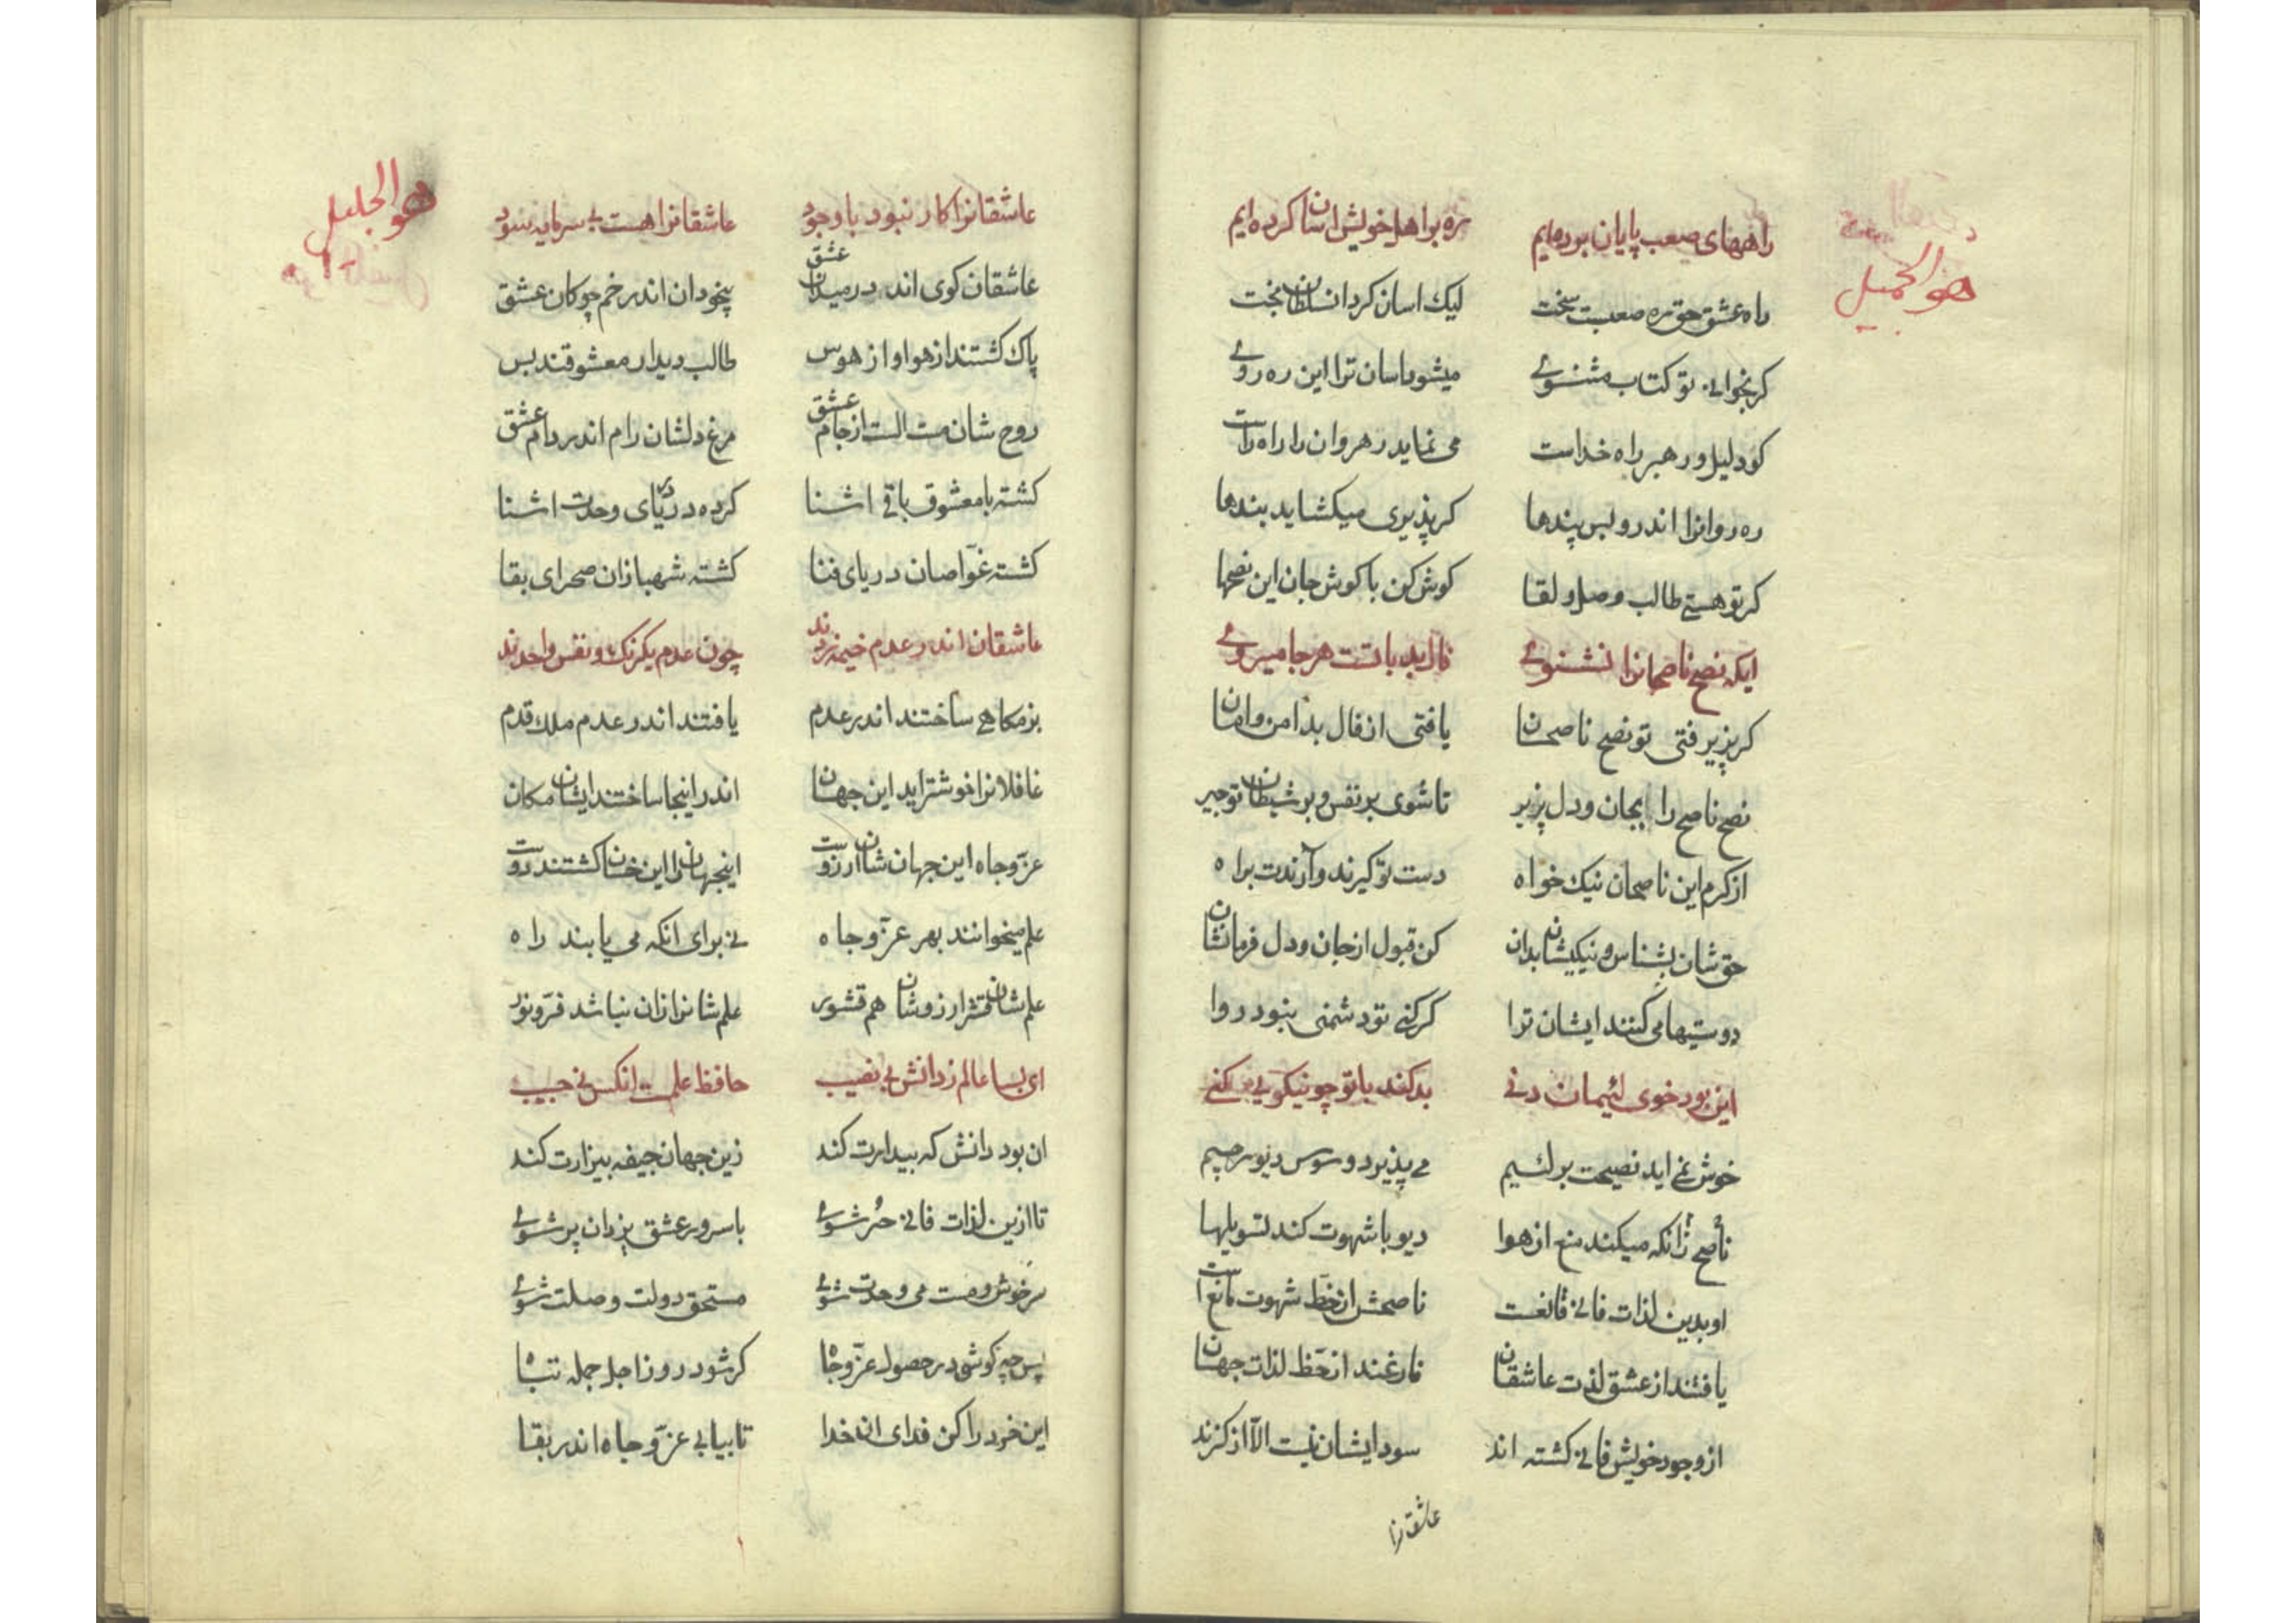 هو الجمیل
راههای صعب پایان برده‌ایم ره براهل خویش اسان کرده‌ایم
راه عشق حق ره صعبست سخت لیک اسان کرد ان سلطان بخت
کر بخوانی تو کتاب مثنوی میشود اسان ترا این ره روی
کو دلیل و رهبر راه خداست می نماید رهروان را راه راست
ره روانرا اندرو بس پندها کر پذیری میکشاید بندها
کر تو هستی طالب وصل و لقا کوش کن با کوش جان این نصحها
ایکه نصح ناصحانرا نشنوی فال بد با تست هر جا میروی
کر پزیرفتی تو نصح ناصحان یافتی از فال بد امن و امان
نصح ناصح را بجان و دل پزیر تا شوی بر نفس و بر شیطان تو چیر
از کرم این ناصحان نیک خواه دست تو کیرند و آرندت براه
حق شان بشناس و نیکیشان بدان کن قبول از جان و دل فرمانشان
دوستیها می کنند ایشان ترا کر کنی تو دشمنی نبود روا
این بود خوی لئیمان دنی بد کند با تو چو نیکویی کنی
خوش نمی اید نصیحت بر لئیم می پذیرد وسوس دیو رجیم
ناصح زانکه میکند منع از هوا دیو با شهوت کند تسویلها
او بدین لذات فانی قانعست ناصحش از حظ شهوت مانع است
یافتند از عشق لذت عاشقان فارغند از حظ لذات جهان
از وجود خویش فانی کشته اند سود ایشان نیست الا از کزند
عاشقانرا
هو الجلیل
عاشقانرا کار نبود با وجود عاشقانرا هست بی سرمایه سود
عاشقان کوی اند در میدان عشق بیخودان اندر خم چوکان عشق
پاک کشتند از هوا و از هوس طالب دیدار معشوقند بس
روح شان مست الست از جام عشق مرغ دلشان رام اندر دام عشق
کشته با معشوق باقی اشنا کرده در دریای وحدت اشنا
کشته غواصان دریای فنا کشته شهبازان صحرای بقا
عاشقان اندر عدم خیمه زدند چون عدم یکرنک و نفس واحدند
بزمکاهی ساختند اندر عدم یافتند اندر عدم ملک قدم
غافلانرا خوشتر اید این جهان اندر اینجا ساختند ایشان مکان
عز و جاه این جهان شان ارزوست اینجهان را این خسان کشتند دوست
علم میخوانند بهر عز و جاه نی برای انکه می یابند راه
علم شان قشر ارزوشان هم قشور علم شانرا زان نباشد فر و نور
ای بسا عالم ز دانش بی نصیب حافظ علمست انکس نی حبیب
ان بود دانش که بیدارت کند زین جهان جیفه بیزارت کند
تا ازین لذات فانی حر شوی با سرور عشق یزدان پر شوی
سرخوش و مست می وحدت شوی مستحق دولت وصلت شوی
پس چه کوشی در حصول عز و جاه کر شود روز اجل جمله تباه
این خرد را کن فدای ان خدا تا بیابی عز و جاه اندر بقا